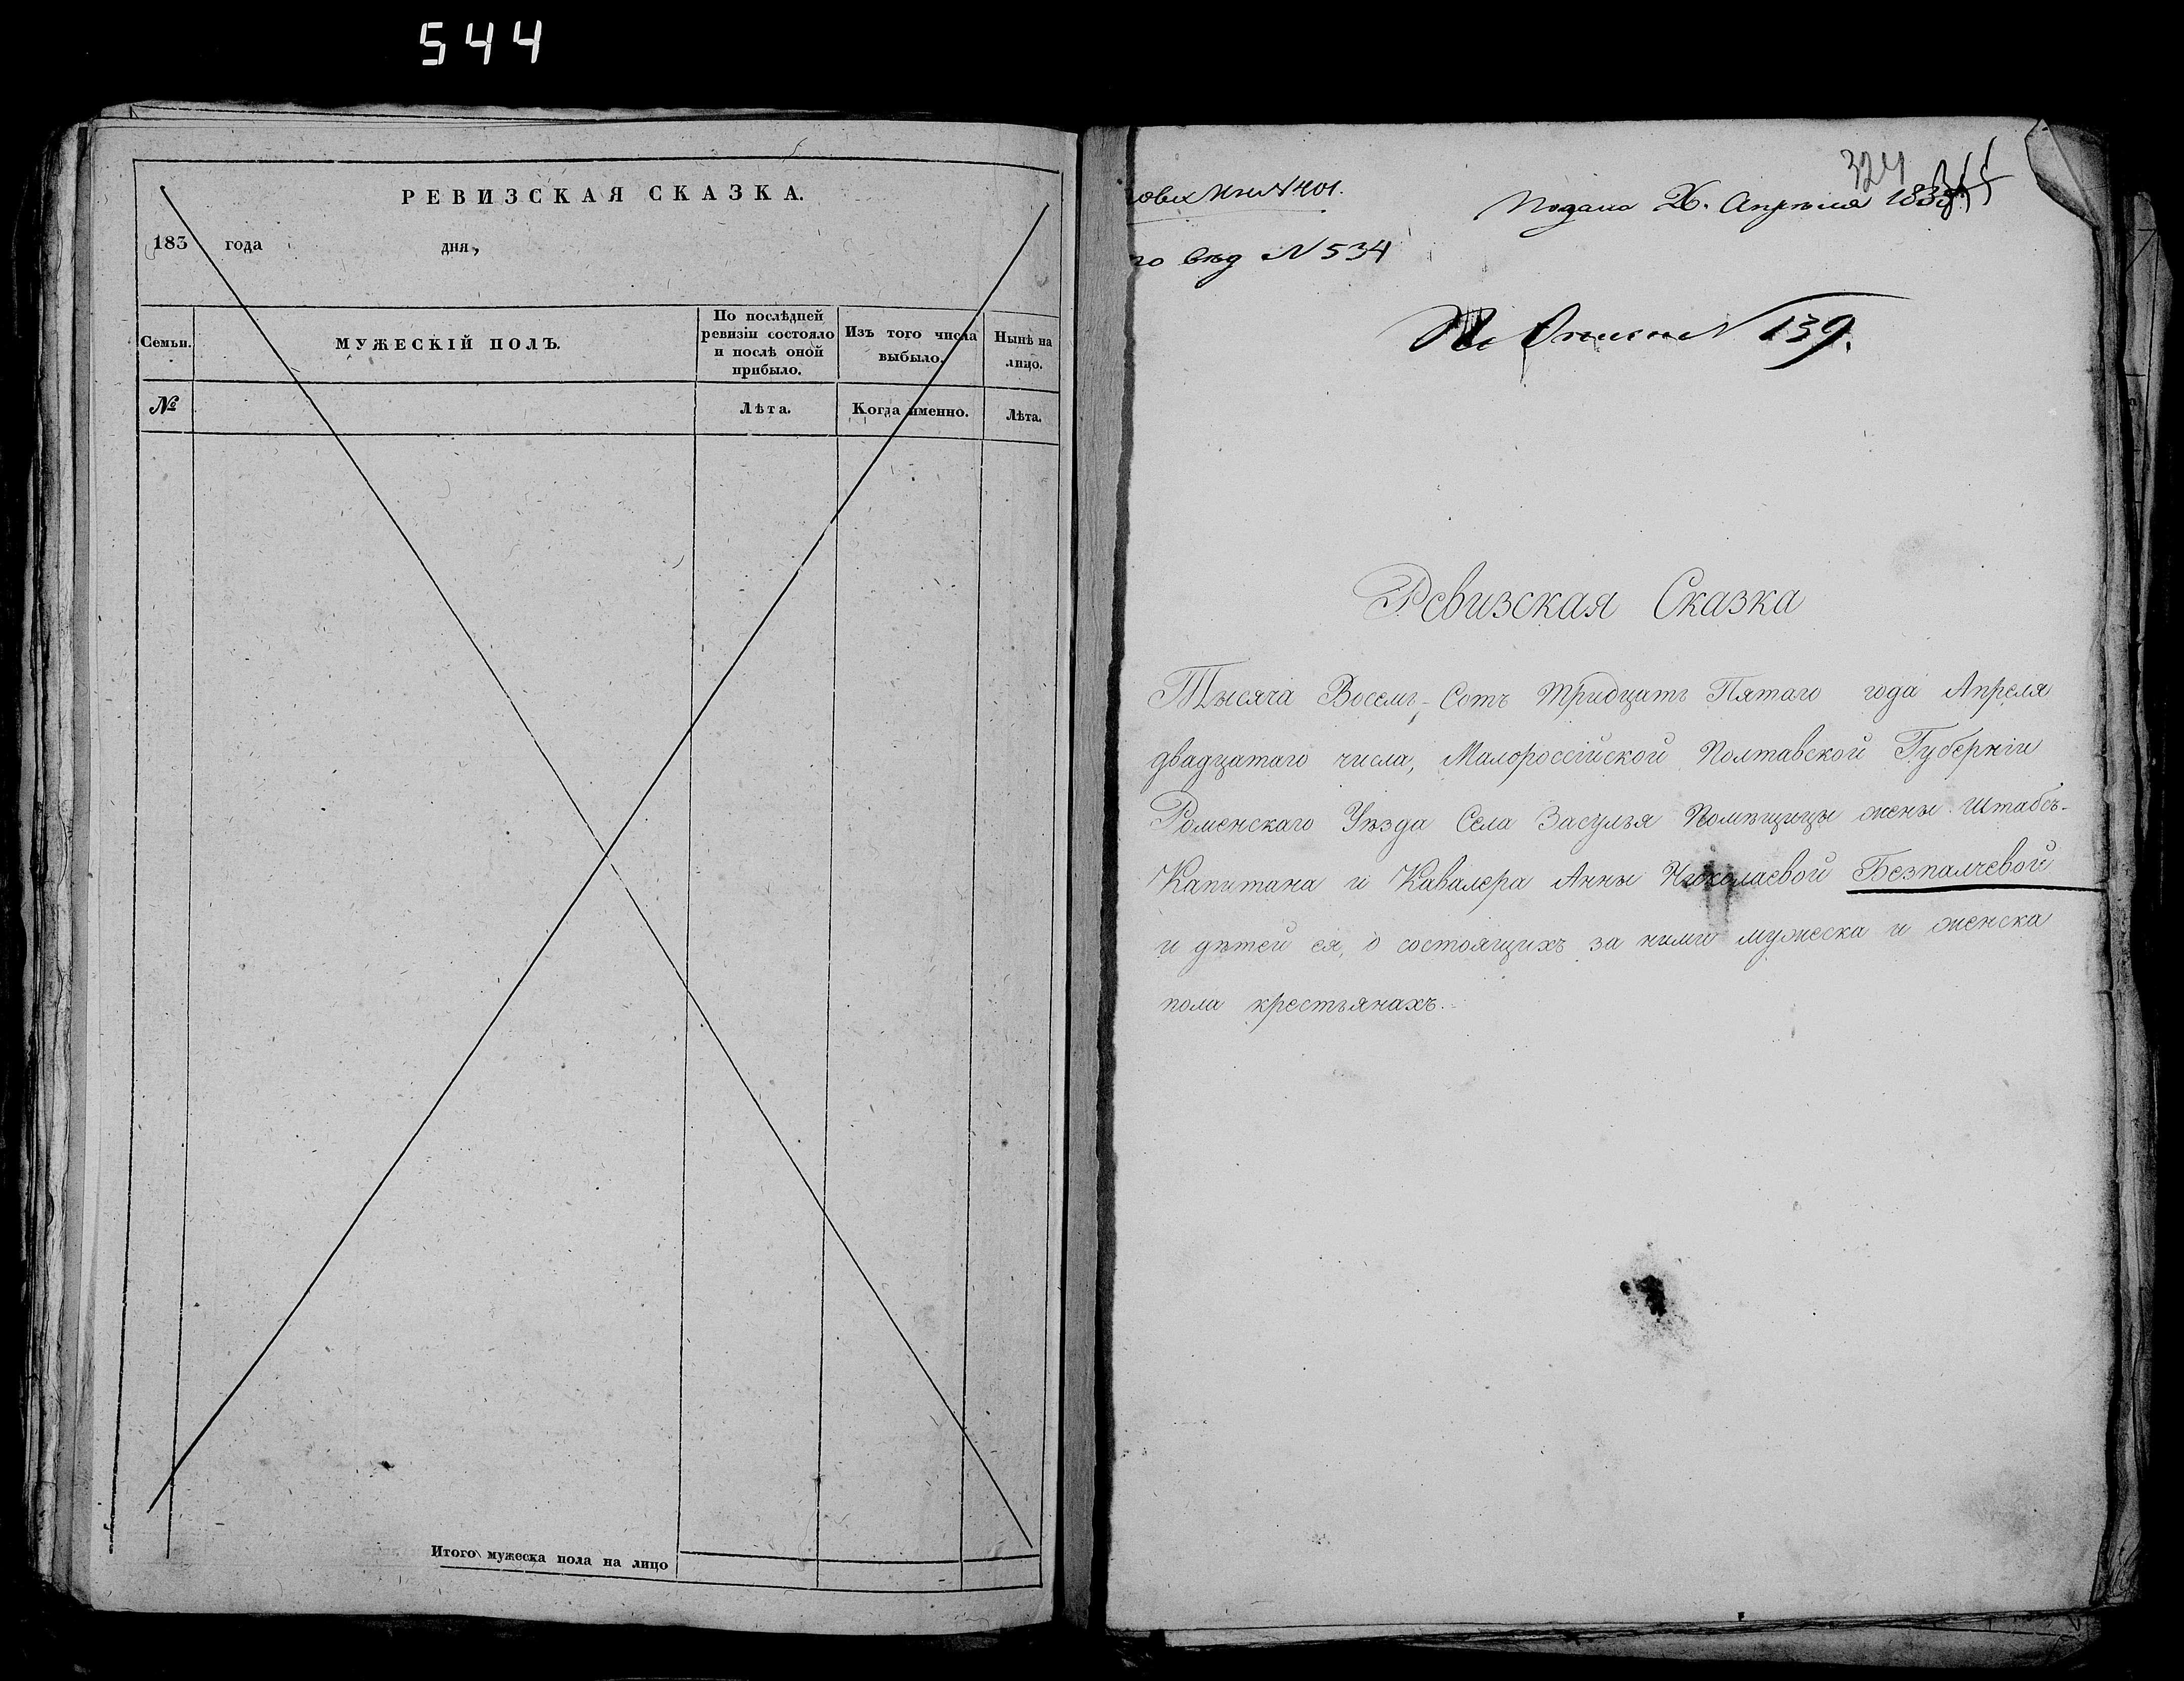 544
РЕВИЗСКАЯ СКАЗКА.
183 года дня,
Семьи.
МУЖЕСКІЙ ПОЛЪ.
По послѣдней
ревизіи состояло
и послѣ оной
прибыло.
Изъ того числа
выбыло.
Нынѣ на
лицо.
№
Лѣта.
Когда именно.
Лѣта.
Итого мужеска пола на лицо
324
№ 401.
Подана 26. Апрѣля 1835
вѣд № 534
По Описи № 139.
Ревизская Сказка
Тысяча Восемь-Сотъ Тридцать Пятаго года Апреля
двадцатаго числа, Малороссійской Полтавской Губерніи
Роменскаго Уѣзда Села Засулья Помѣщицы жены Штабсъ-
Капитана и Кавалера Анны Николаевой Безпалчевой
и дѣтей ея, о состоящихъ за ними мужеска и женска
пола крестьянахъ.